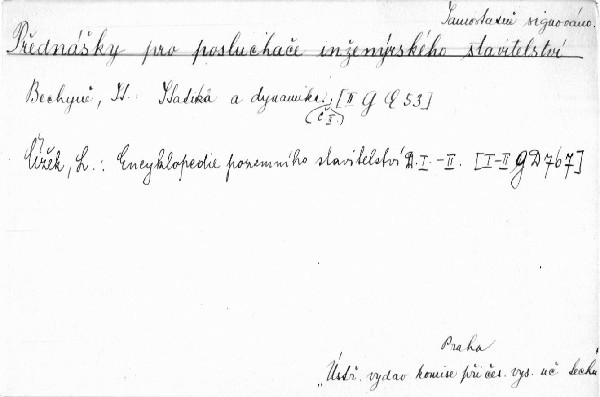 Samostatně signováno.
Přednášky pro posluchače inženýrského stavitelství
Bechyně, St. Statika a dynamika. [II G E 53]
(Č. I.)
Čížek, L.: Encyklopedie pozemního stavitelství D. I. - II. [I-II G D 767]
Praha
"Ústř. vydav komise při čes. vys. uč tech